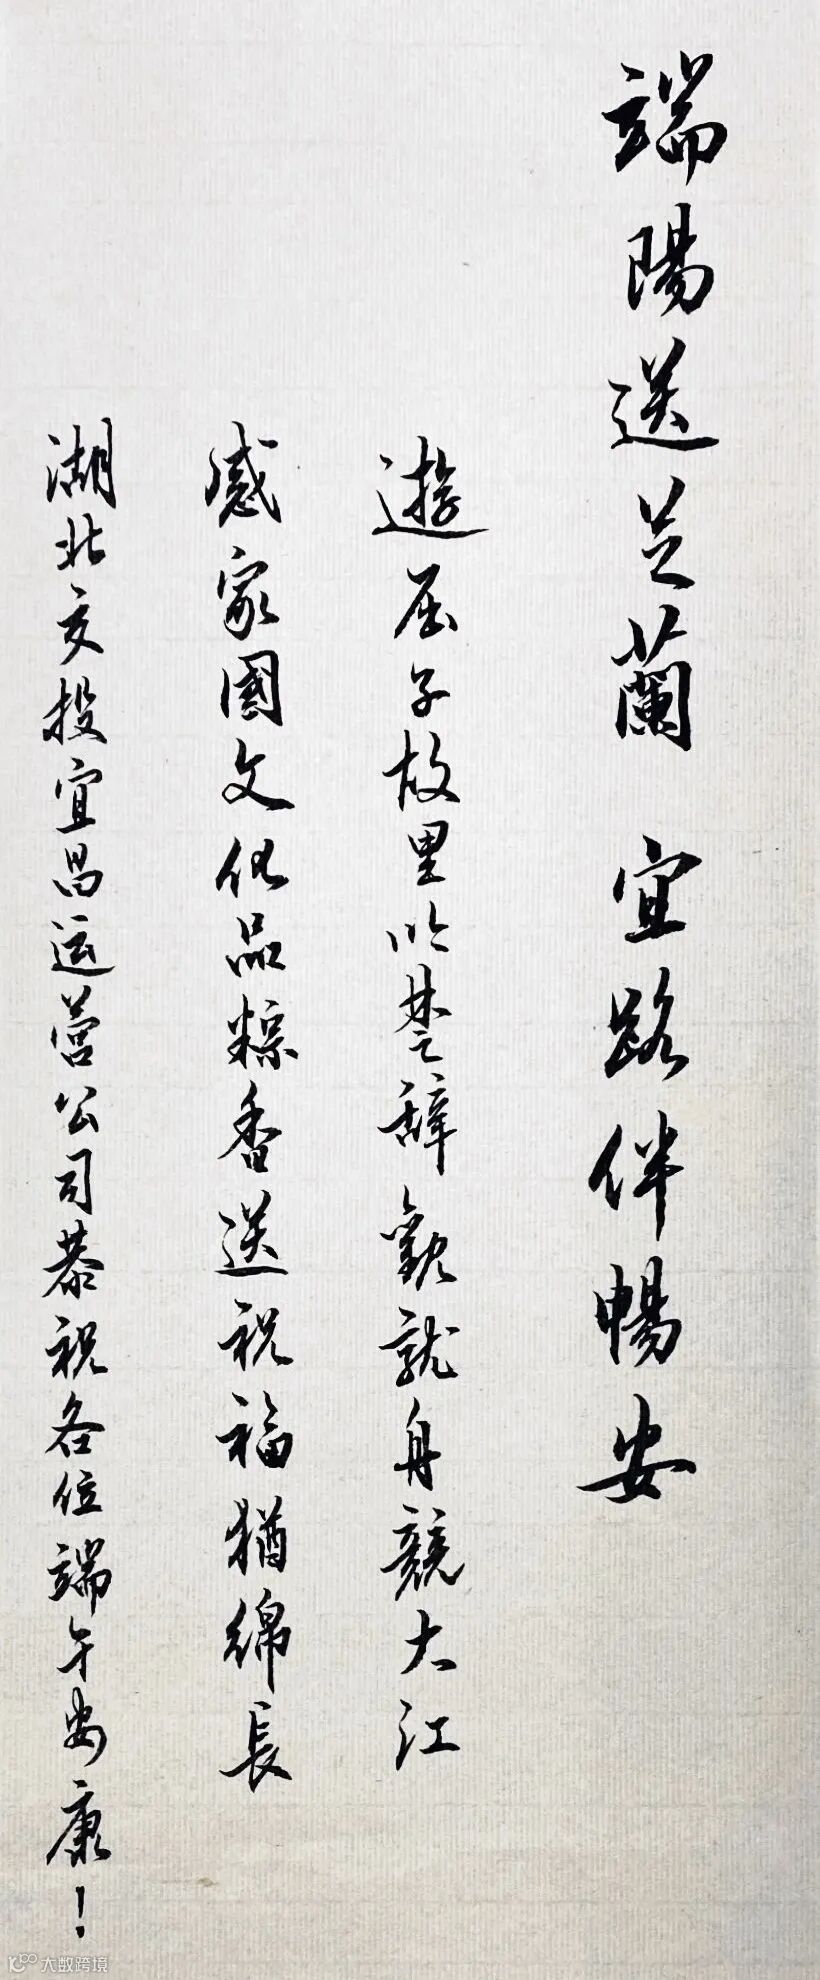 端陽送芝蘭 宜路伴暢安
遊屈子故里吟楚辭觀龍舟競大江
感家國文化品粽香送祝福猶綿長
湖北交投宜昌运营公司恭祝各位端午安康！
大数跨境